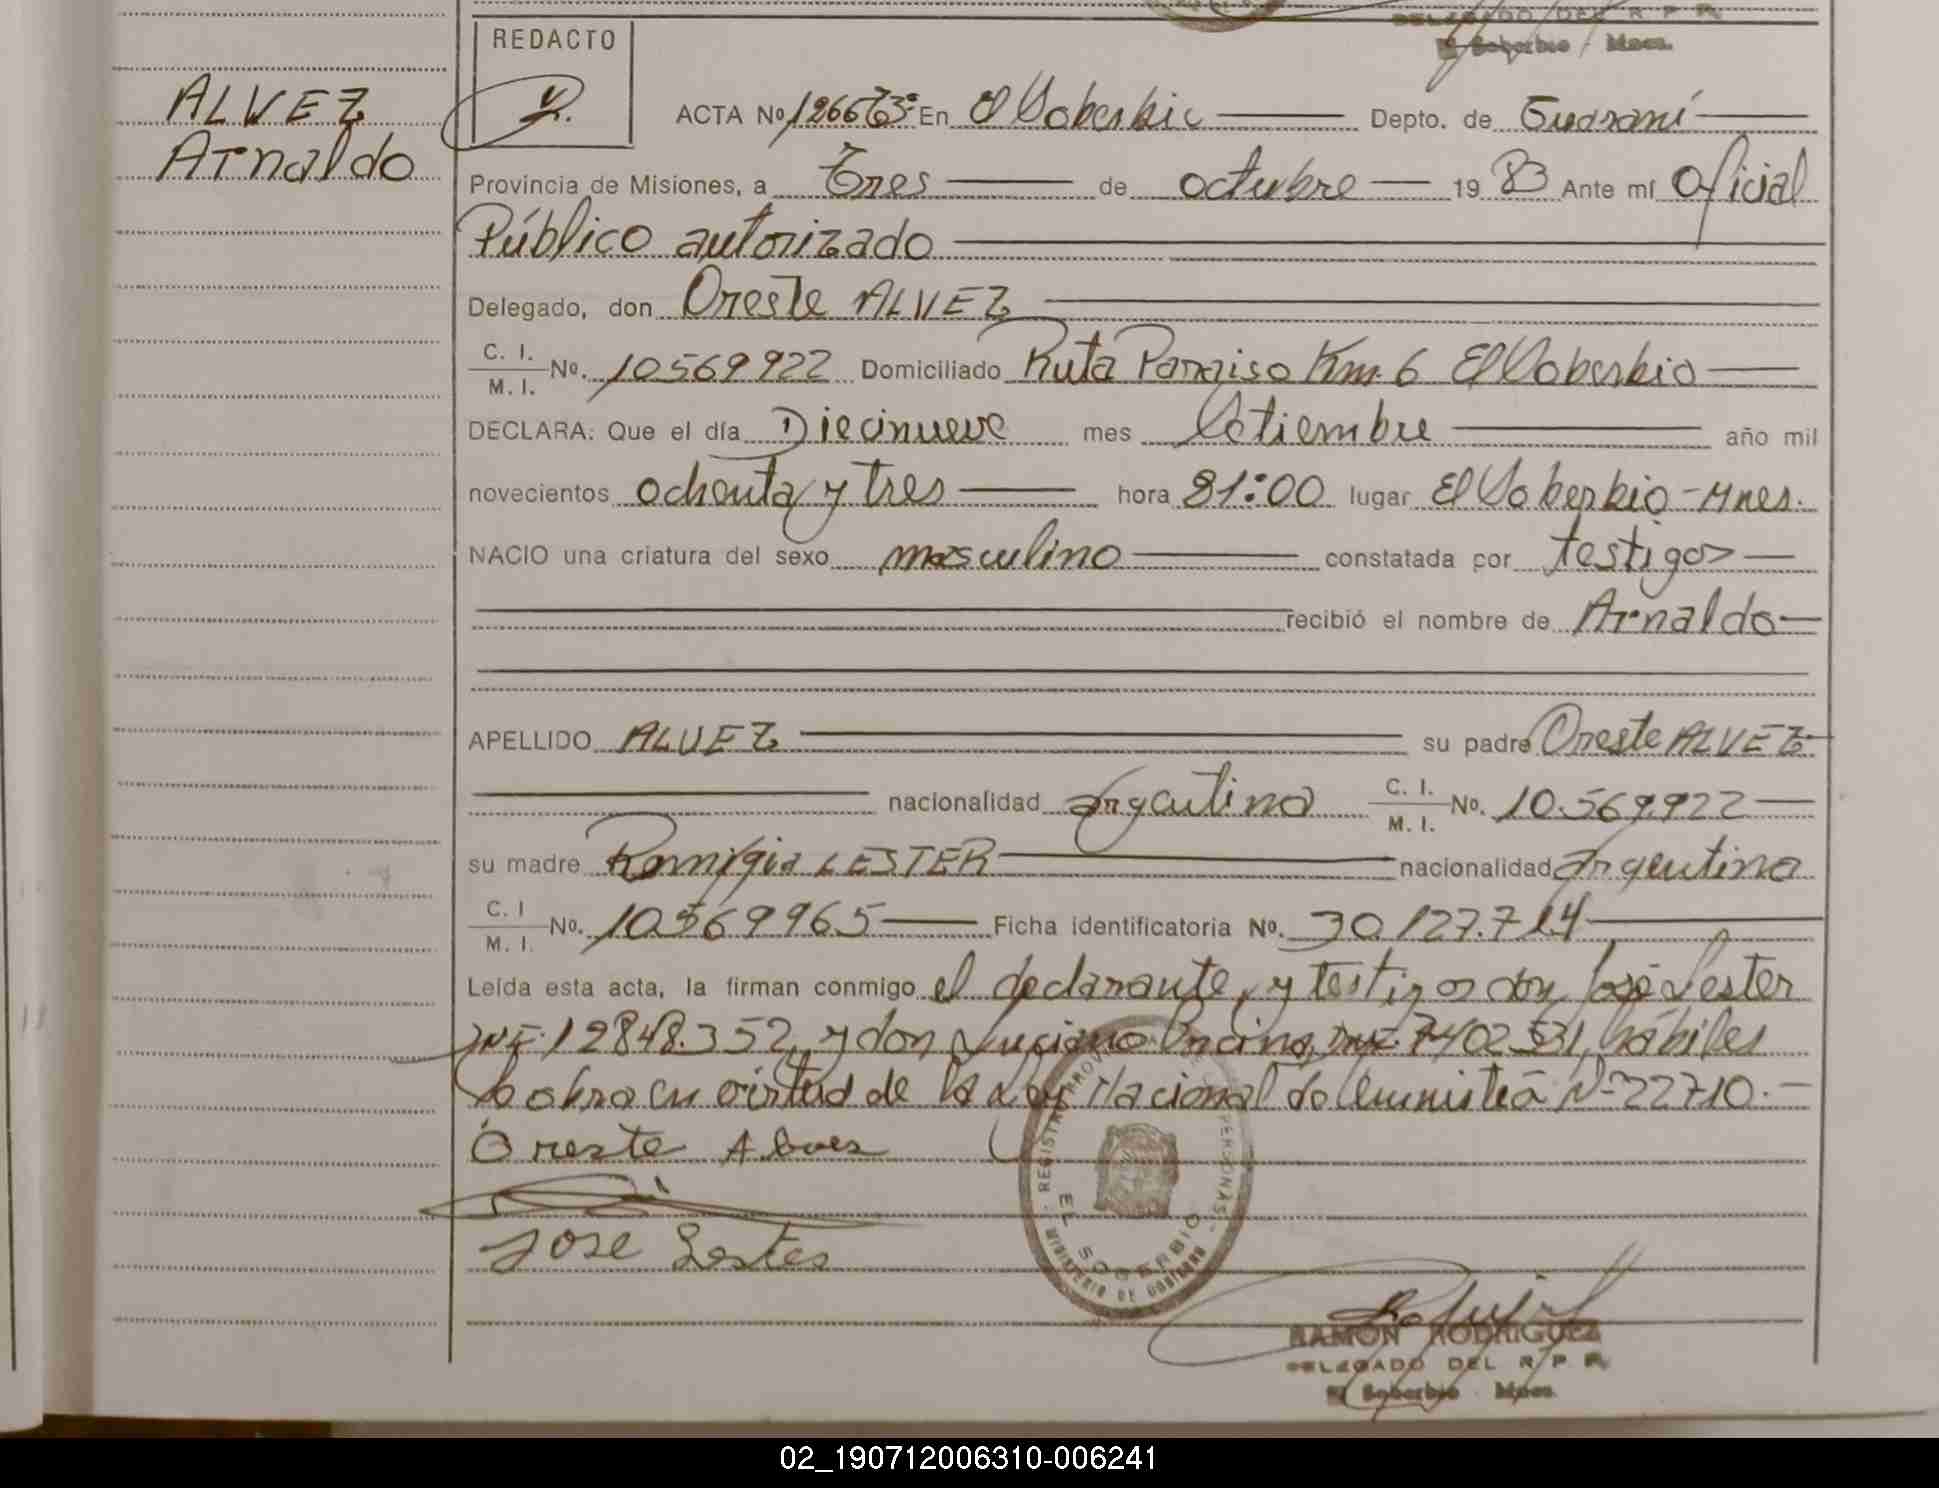 DELEGADO DEL R P P
El Soberbio Mnes.
REDACTO
ALVEZ
Arnaldo
ACTA Nº 1266 En El Soberbio Depto. de Guaraní
Provincia de Misiones, a Tres de octubre 1983 Ante mí Oficial
Público autorizado
Delegado, don Oreste ALVEZ
C. I. M. I. Nº. 10569922 Domiciliado Ruta Paraiso Km. 6 El Soberbio
DECLARA: Que el día Diecinueve mes Setiembre año mil
novecientos ochenta y tres hora 21:00 lugar El Soberbio - Mnes.
NACIO una criatura del sexo masculino constatada por testigos
recibió el nombre de Arnaldo
APELLIDO ALVEZ su padre Oreste ALVEZ
nacionalidad argentina C. I. M. I. Nº. 10.569.922
su madre Remigia LESTER nacionalidad argentina
C. I M. I. Nº. 10.569965 Ficha identificatoria Nº. 30.127.714
Leída esta acta, la firman conmigo el declarante, y testigos don José Lester
12848.352, y don Luciano Encina, 7402531, hábiles
labro en virtud de la Ley Nacional de Amnistía Nº 22710.-
Oreste Alves
Jose Lester
REGISTRO PROVINCIAL DE LAS PERSONAS
EL SOBERBIO
MINISTERIO DE GOBIERNO
RAMON RODRIGUEZ
DELEGADO DEL R P P
El Soberbio Mnes.
02_190712006310-006241